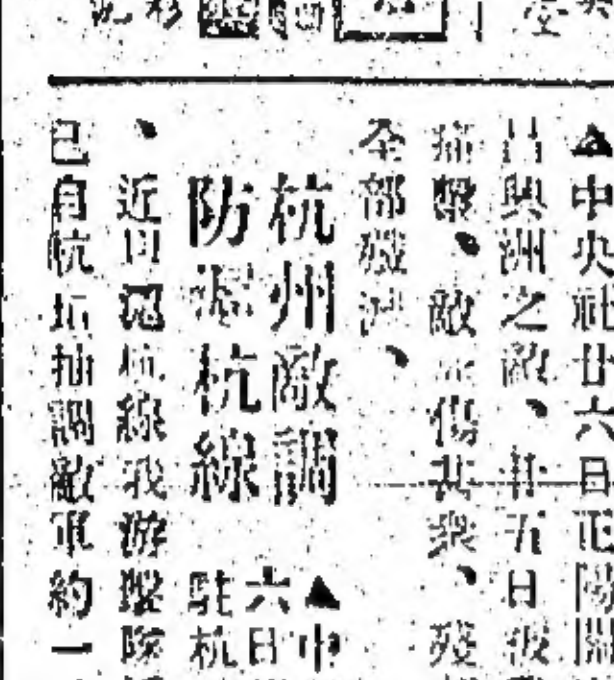 ▲中央社廿六日正陽關
昌興洲之敵、廿五日被我
痛擊、敵死傷甚衆、殘
全部殲滅、
杭州敵調
防滬杭線
▲中
六日
駐杭
、近因滬杭線我游擊隊
已自杭垣抽調敵軍約一